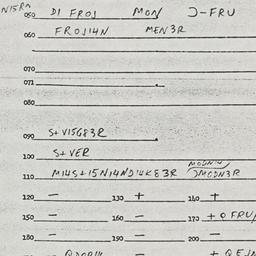 050 DI FROJ MON Ɔ-FRU
060 FROJI4N MEN3R
070
071
080
090 S+V15G83R
100 S+VER
110 M14S+15N14ND14K83R
120 — 130 + 140 +
150 — 160 — 170 + O FRU
180 — 190 — 200 —